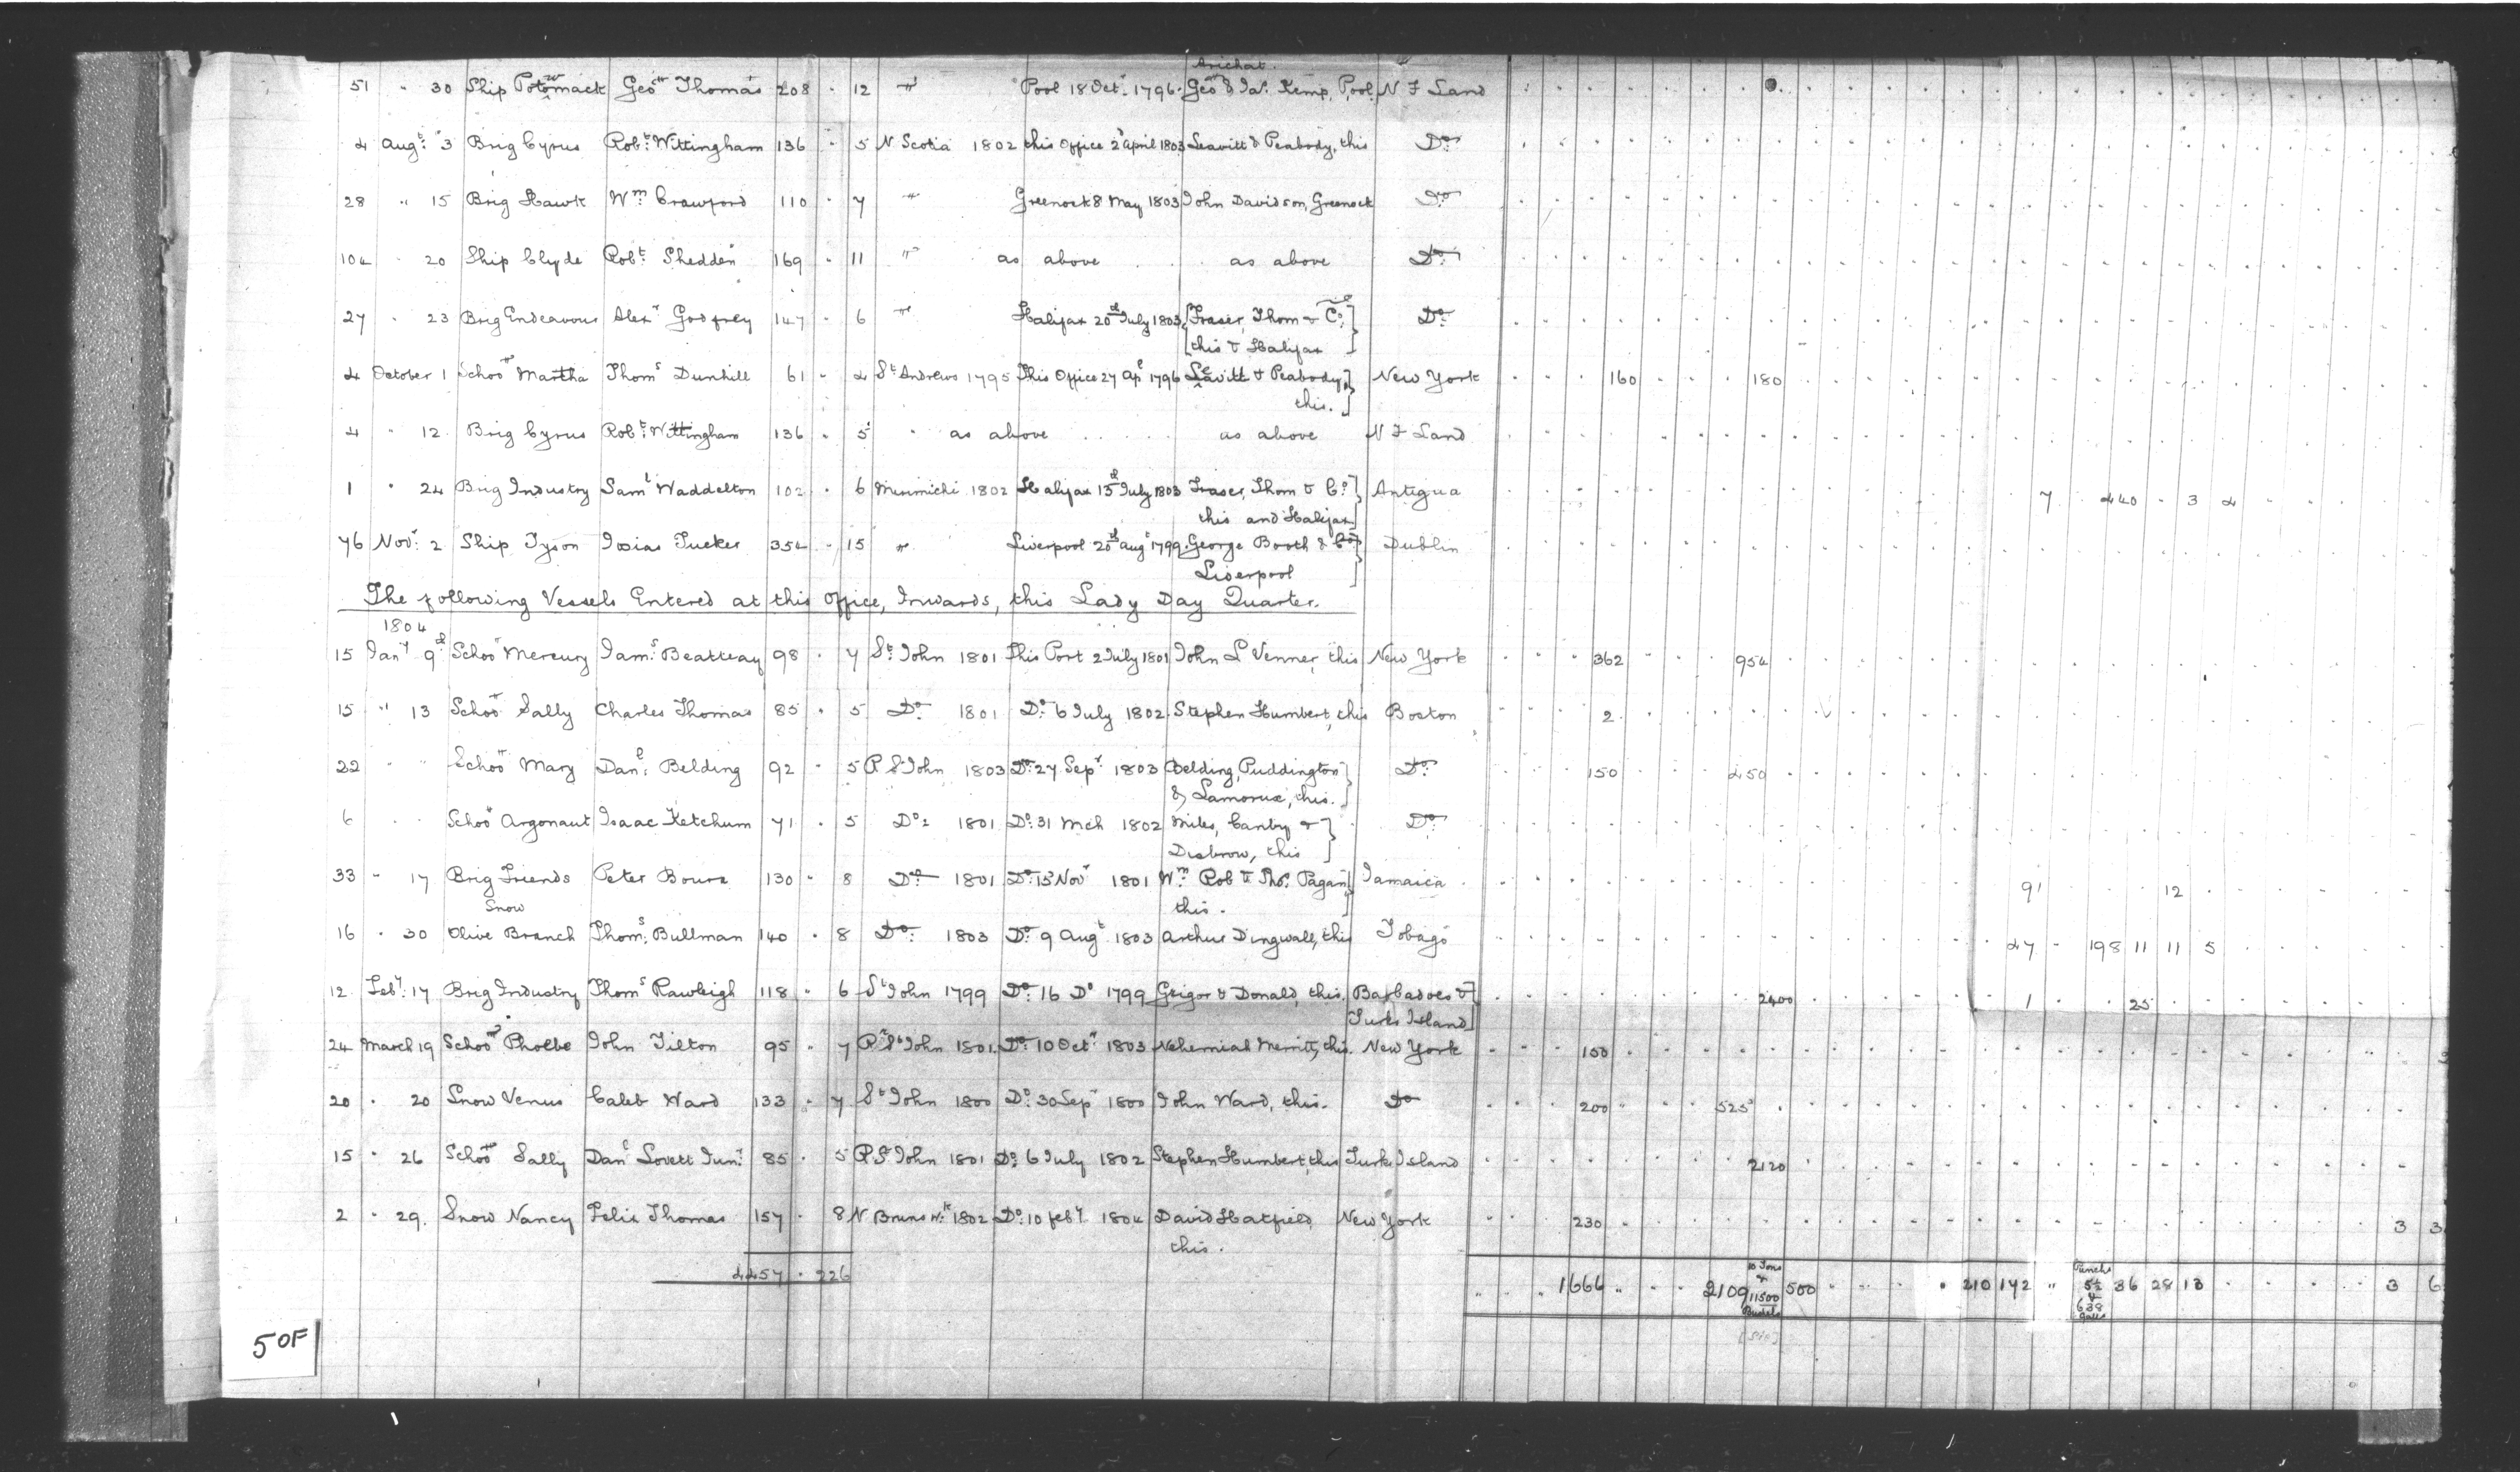 Arichat
51 " 30 Ship Potowmack Geo Thomas 208 . 12 " Pool 18 Oct. 1796. Geo & Ja. Kemp, Pool N F Land
4 Augt. 3 Brig Cyrus Robt. Wittingham 136 . 5 N. Scotia 1802 this Office 2 April 1803 Leavitt & Peabody, this Do.
28 " 15 Brig Hawk Wm Crawford 110 . 7 " Greenock 8 May 1803 John Davidson, Greenock Do.
104 " 20 Ship Clyde Robt. Shedden 169 . 11 " as above . . as above Do.
27 . 23 Brig Endeavour Alexr Godfrey 147 . 6 " Halifax 20th July 1803 [Fraser, Thom & Co.]
[this & Halifax ] Do.
4 October 1 Schoor Martha Thoms Dunhill 61 . 4 St Andrews 1795 This Office 27 Apl 1796 Leavitt & Peabody,] New York 160 180
this. ]
4 " 12 Brig Cyrus Robt. Wittingham 136 . 5 " as above . . . . as above N F Land
1 " 24 Brig Industry Saml Waddelton 102 . 6 Merimichi 1802 Halifax 13th July 1803 Fraser, Thom & Co.] Antigua 7 . 440 . 3 4
this and Halifax]
76 Novr. 2 Ship Tyson Josias Tucker 354 . 15 " Liverpool 20th Augt 1799. George Booth & Co.] Dublin
Liverpool ]
The following Vessels Entered at this Office, Inwards, this Lady Day Quarter.
1804
15 Jany 9th Schoor Mercury Jams. Beatteay 98 . 7 St. John 1801 This Port 2 July 1801 John L Venner, this New York 362 954
15 " 13 Schoor Sally Charles Thomas 85 . 5 Do. 1801 Do. 6 July 1802 Stephen Humbert, this Boston 2
22 " " Schoor Mary Danl. Belding 92 . 5 P. St John 1803 Do. 27 Sepr 1803 Belding, Puddington] Do. 150 450
& Lamorux, this. ]
6 . . Schoor Argonaut Isaac Ketchum 71 . 5 Do. 1801 Do. 31 Mch 1802 Miles, Canby & ] Do.
Disbrow, this ]
33 " 17 Brig Friends Peter Bourn 130 . 8 Do. 1801 Do. 13 Novr 1801 Wm Rob & Tho. Pagan] Jamaica 91 12
Snow this. ]
16 . 30 Olive Branch Thoms. Bullman 140 . 8 Do. 1803 Do. 9 Augt 1803 Arthur Dingwall, this Tobago 47 . 198 11 11 5
12 Feby. 17 Brig Industry Thoms Rawleigh 118 . 6 St John 1799 Do. 16 Do 1799 Grigor & Donald, this. Barbadoes &] 2400 1 25
Turks Island]
24 March 19 Schoor Phoebe John Tilton 95 . 7 P. St John 1801. Do. 10 Octr 1803 Nehemiah Merritt, this. New York 150
20 . 20 Snow Venus Caleb Ward 133 . 7 St John 1800 Do. 30 Sepr 1800 John Ward, this. Do 200 525
15 " 26 Schoor Sally Danl Lovett Junr. 85 . 5 P. St John 1801 Do. 6 July 1802 Stephen Humbert, this Turks Island 2120
2 " 29. Snow Nancy Felix Thomas 157 . 8 N Brunswk 1802 Do. 10 Feby. 1804 David Hatfield, New York 230 3 3
this.
4457 . 226
1666 " 2109 10 Tons & 11500 Bushels 500 210 172 " Punchs 52 & 638 galls 36 28 13 3 6
[sic]
5 OF